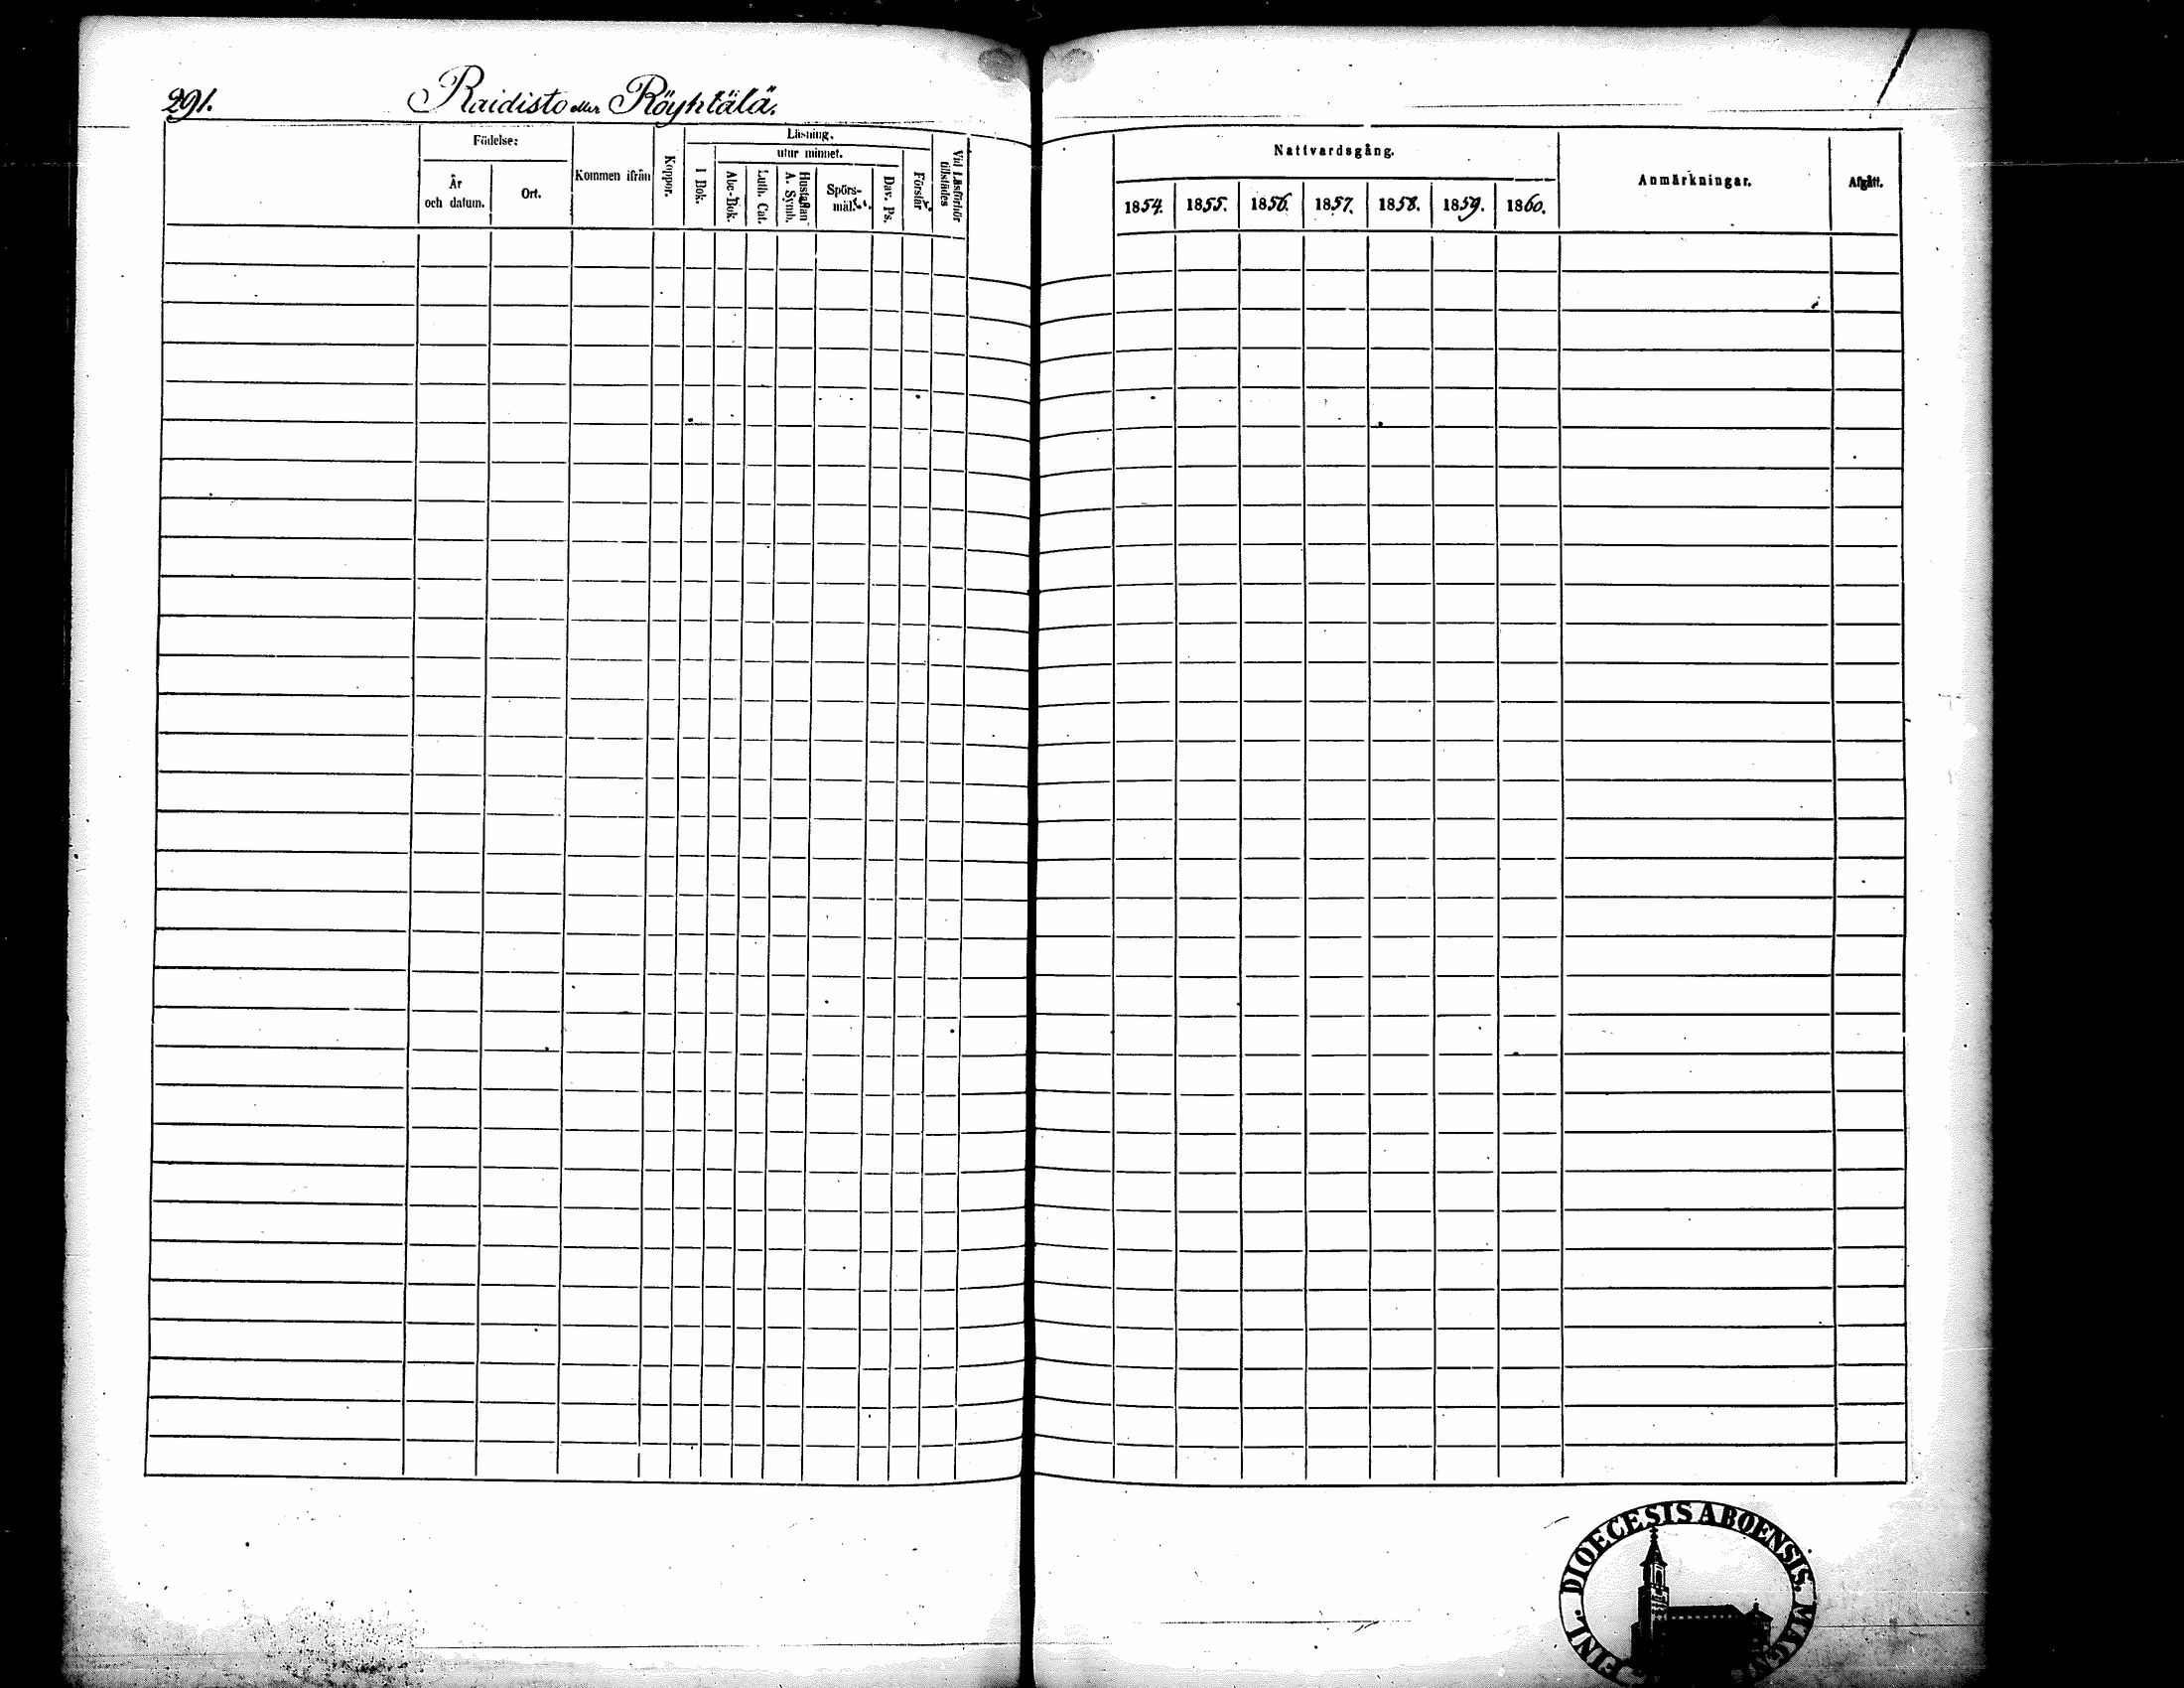 291. Raidisto eller Röyhtälä.
Födelse:
År
och datum.
Ort.
Kommen ifrån
Koppor.
Läsning.
utur minnet.
I Bok.
Abc-Bok.
Luth. Cat.
Hustaflan
A. Symb.
Spörs-
mål.
Dav. Ps.
Förstår
Vid Läsförhör
tillstädes
Nattvardsgång.
1854. 1855. 1856. 1857. 1858. 1859. 1860.
Anmärkningar.
Afgått.
FINL. DIOECESIS ABOENSIS.